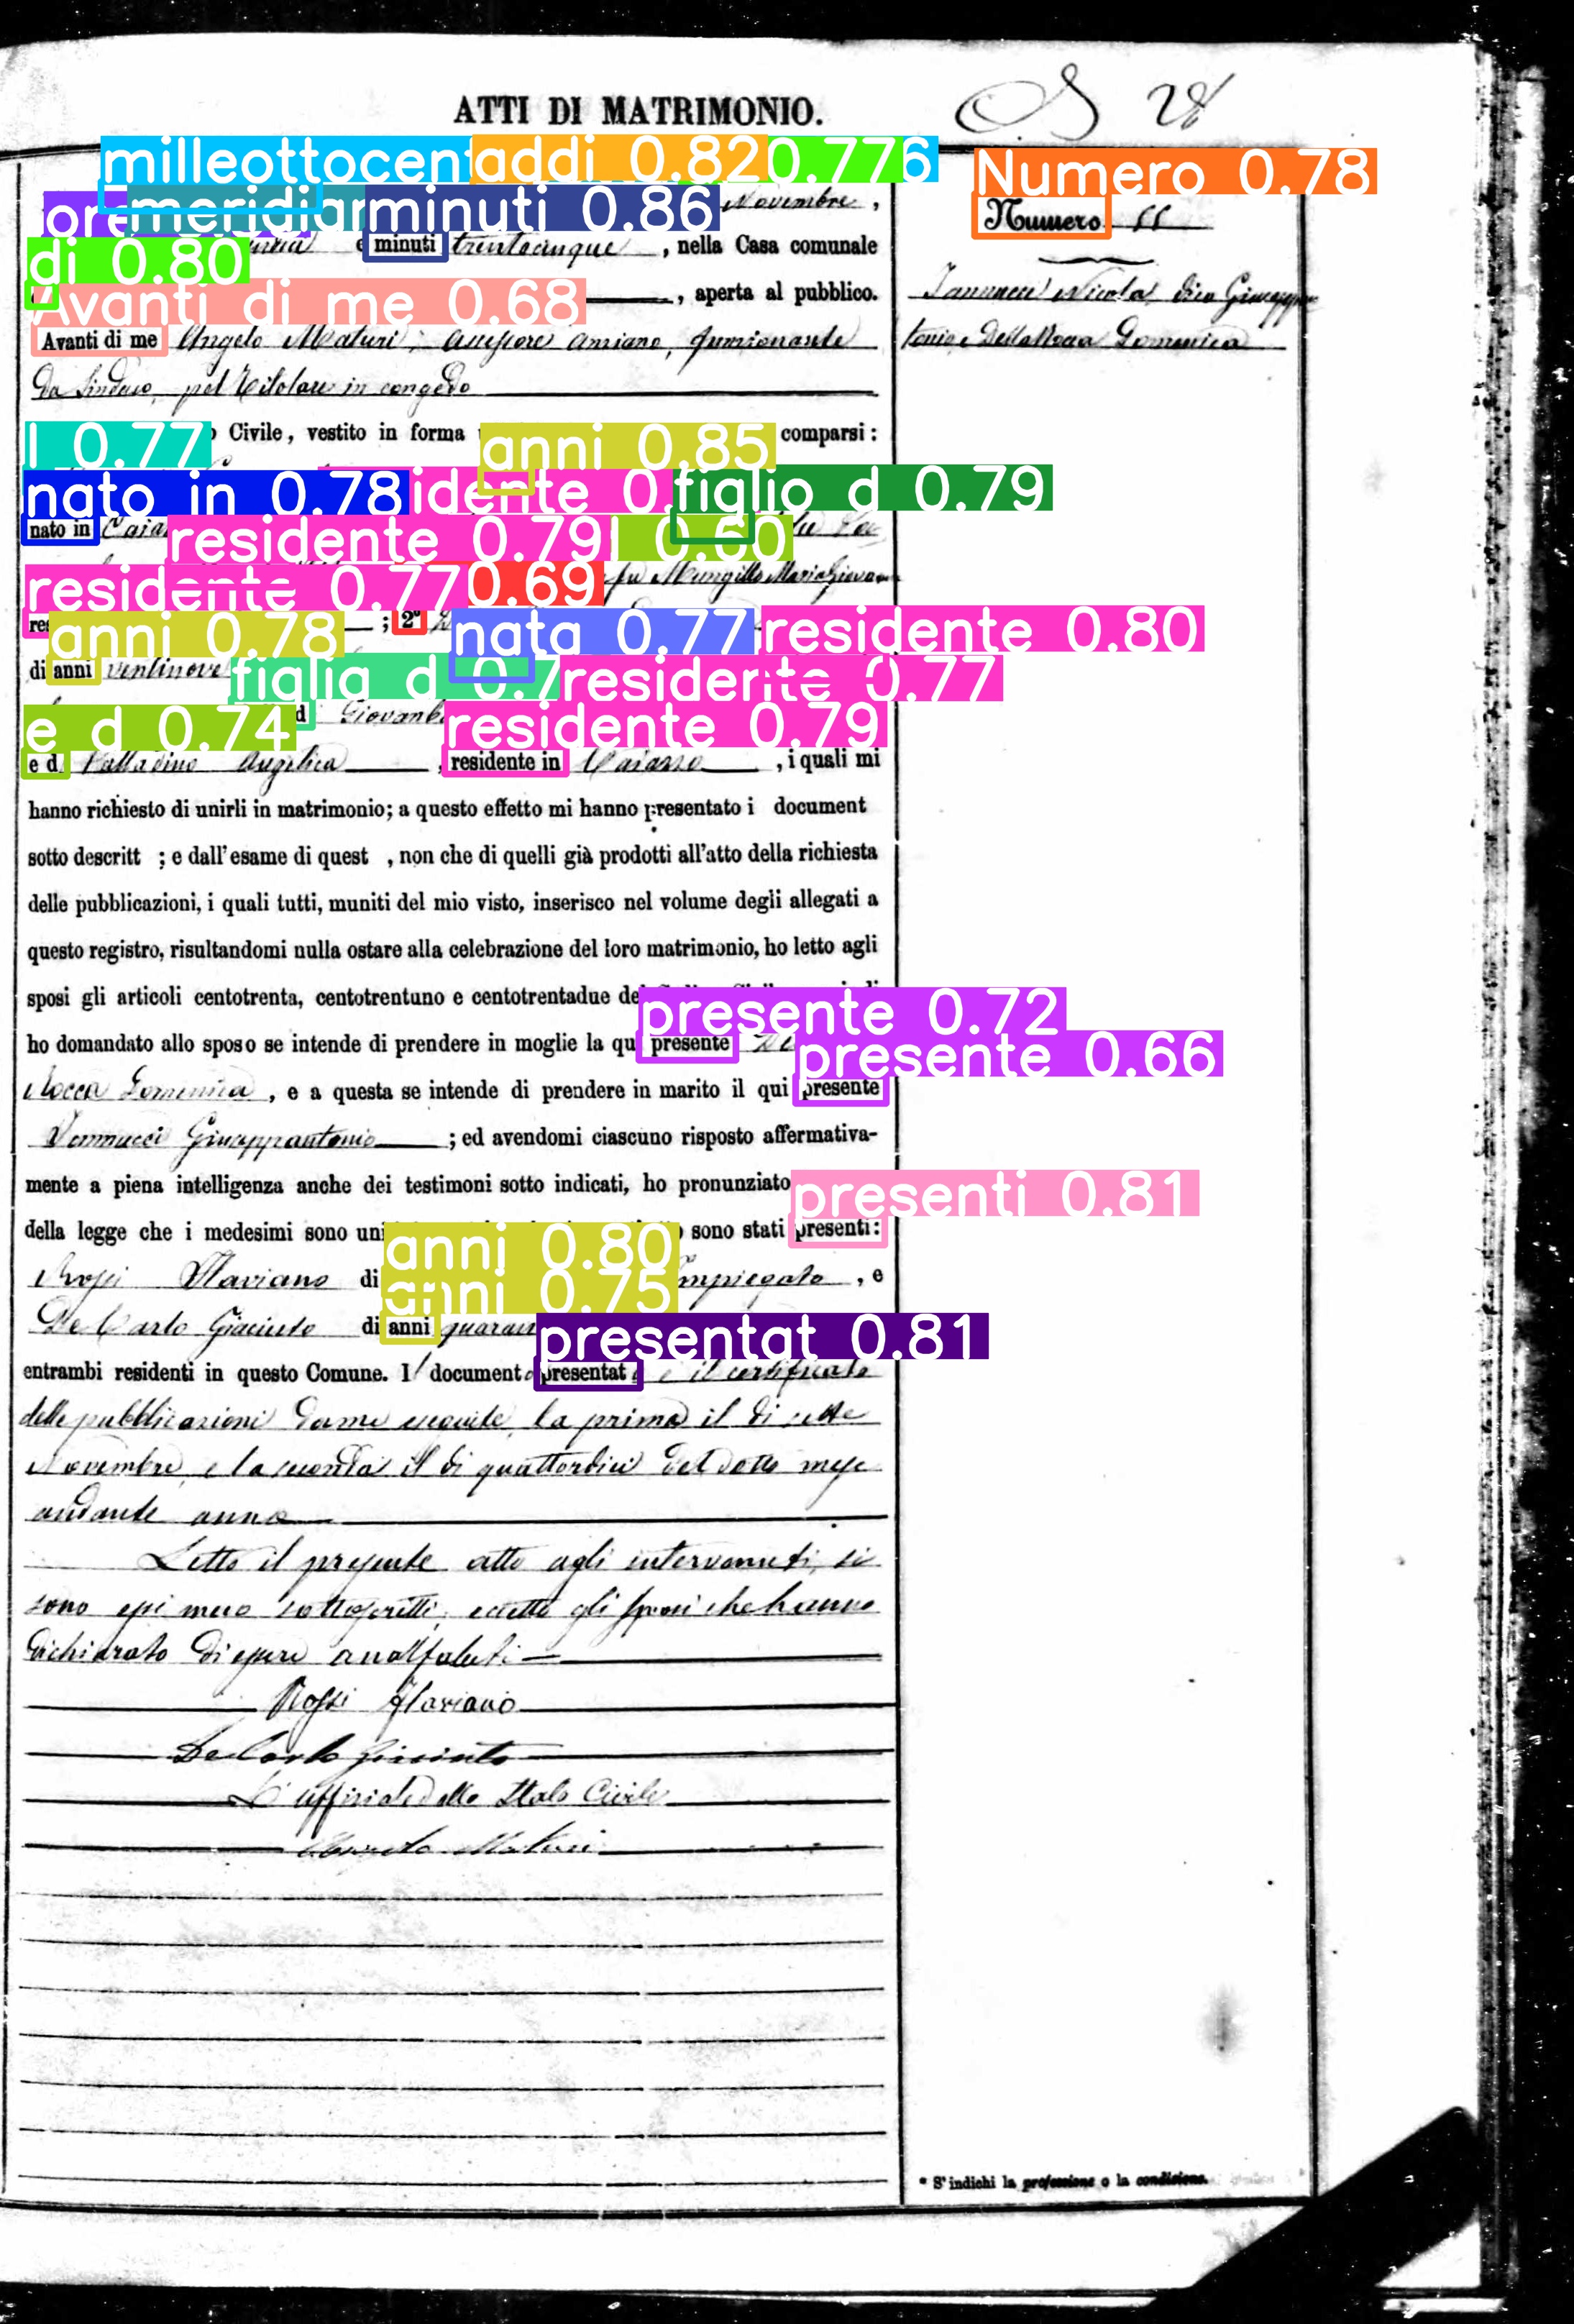 ATTI DI MATRIMONIO.
28
milleottocen addi 0.82 0.776
Numero 0.78
ore meridian minuti 0.86 Novembre,
Numero 55
e minuti trentacinque, nella Casa comunale
di 0.80
Avanti di me 0.68 , aperta al pubblico.
Iannucci Nicola dico Giuseppan
tonio e Della Rocca Domenica
Avanti di me Angelo Maturi, assessore anziano, funzionante
da Sindaco, pel titolare in congedo
l 0.77 Civile, vestito in forma anni 0.85 comparsi:
nato in 0.78 idente 0. figlio d 0.79
nato in
residente 0.79 l 0.60
residente 0.77 0.69 fu Mungillo Maria Giovanna
; 2°
anni 0.78 nata 0.77 residente 0.80
di anni ventinove
figlia d 0.7 residente 0.77
d Giovanb
e d 0.74 residente 0.79
e d Palladino Angelica, residente in Caiazzo, i quali mi
hanno richiesto di unirli in matrimonio; a questo effetto mi hanno presentato i document
sotto descritt ; e dall'esame di quest , non che di quelli già prodotti all'atto della richiesta
delle pubblicazioni, i quali tutti, muniti del mio visto, inserisco nel volume degli allegati a
questo registro, risultandomi nulla ostare alla celebrazione del loro matrimonio, ho letto agli
sposi gli articoli centotrenta, centotrentuno e centotrentadue de
presente 0.72
ho domandato allo sposo se intende di prendere in moglie la qu presente
presente 0.66
Rocca Domenica, e a questa se intende di prendere in marito il qui presente
Iannucci Giuseppantonio; ed avendomi ciascuno risposto affermativa-
mente a piena intelligenza anche dei testimoni sotto indicati, ho pronunziato
presenti 0.81
della legge che i medesimi sono uni sono stati presenti:
anni 0.80
Rossi Flaviano di impiegato, e
anni 0.75
De Carlo Giacinto di anni quaran
presentat 0.81
entrambi residenti in questo Comune. Il documento presentato è il certificato
delle pubblicazioni da me eseguite, la prima il di sette
Novembre, e la seconda il di quattordici del detto mese
andante anno
Letto il presente atto agli intervenuti, si
sono essi meco sottoscritti, eccetto gli sposi che hanno
dichiarato di essere analfabeti
Rossi Flaviano
De Carlo Giacinto
L'uffiziale dello Stato Civile
Angelo Maturi
* S'indichi la professione o la condizione.